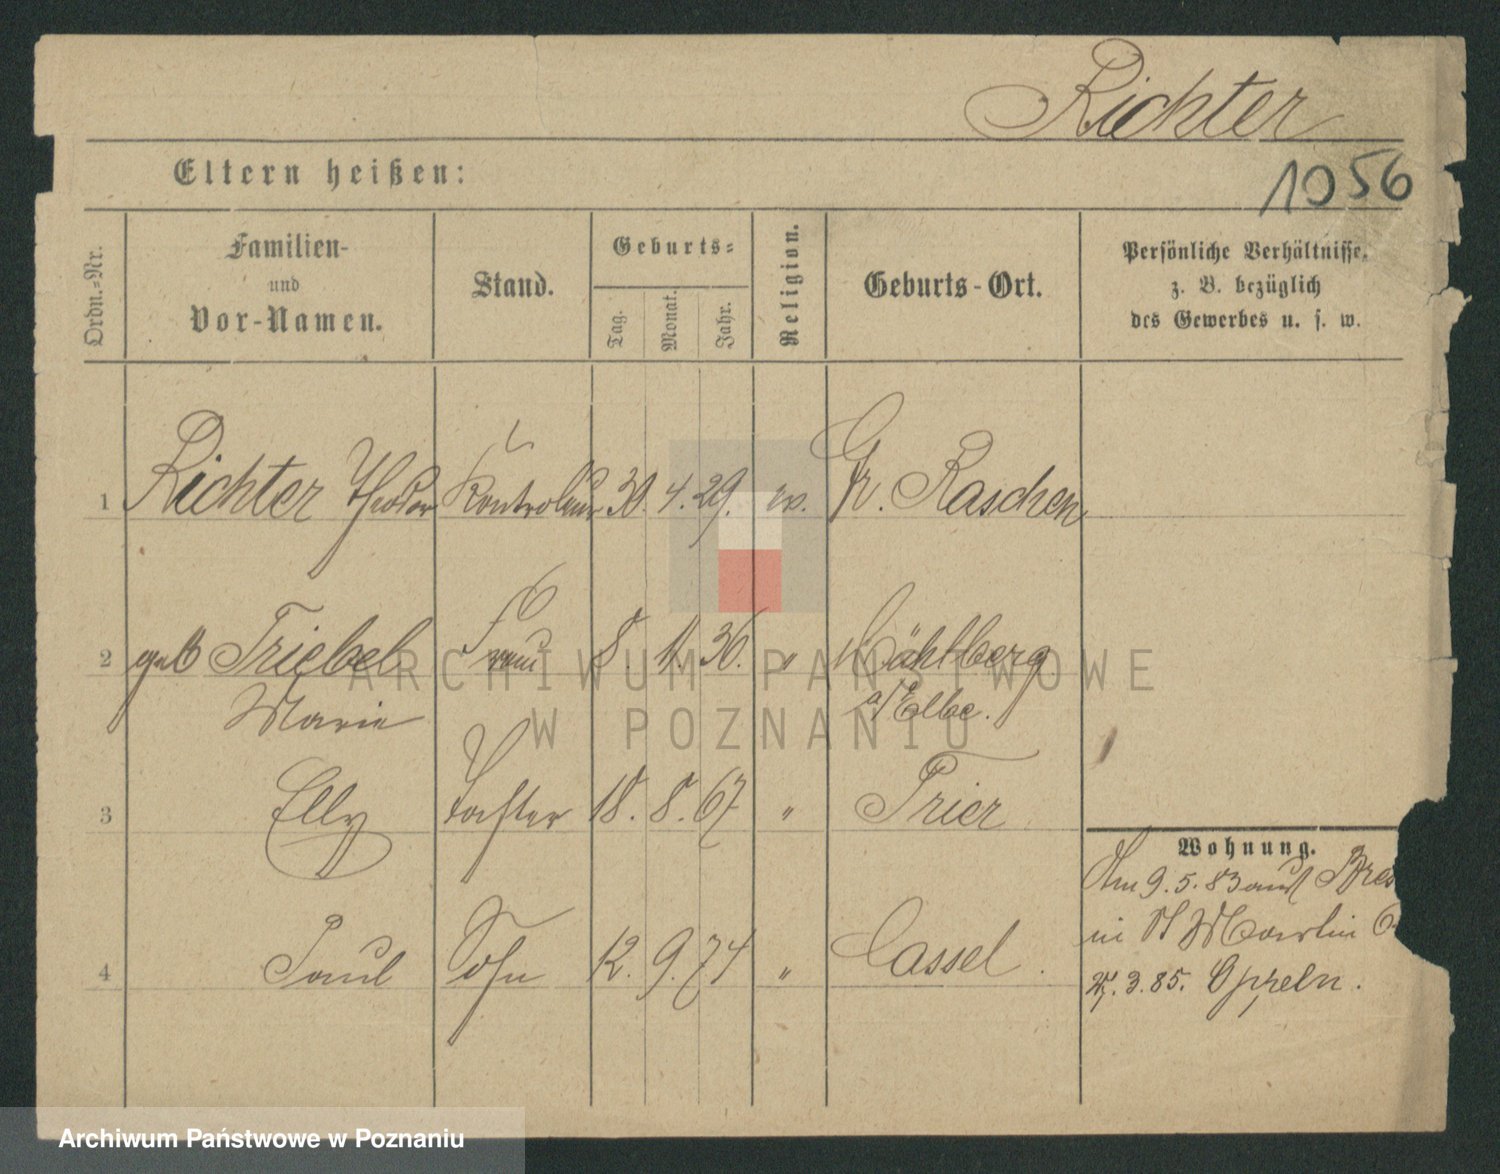 Richter
1056
Eltern heißen:
Ordn.-Nr.
Familien-
und
Vor-Namen.
Stand.
Geburts-
Tag.
Monat.
Jahr.
Religion.
Geburts-Ort.
Persönliche Verhältnisse,
z. B. bezüglich
des Gewerbes u. s. w.
1 Richter Theodor Kontroleur 30. 4. 29. ev. Gr. Raschen
2 geb Triebel Frau 8. 1. 36. " Mühlberg
Marie a/Elbe.
3 Elly Tochter 18. 8. 67 " Trier
4 Paul Sohn 12. 9. 74 " Cassel.
Wohnung.
Am 9. 5. 83 aus Bres
in St Martin 6
3. 85. Oppeln.
ARCHIWUM PAŃSTWOWE
W POZNANIU
Archiwum Państwowe w Poznaniu